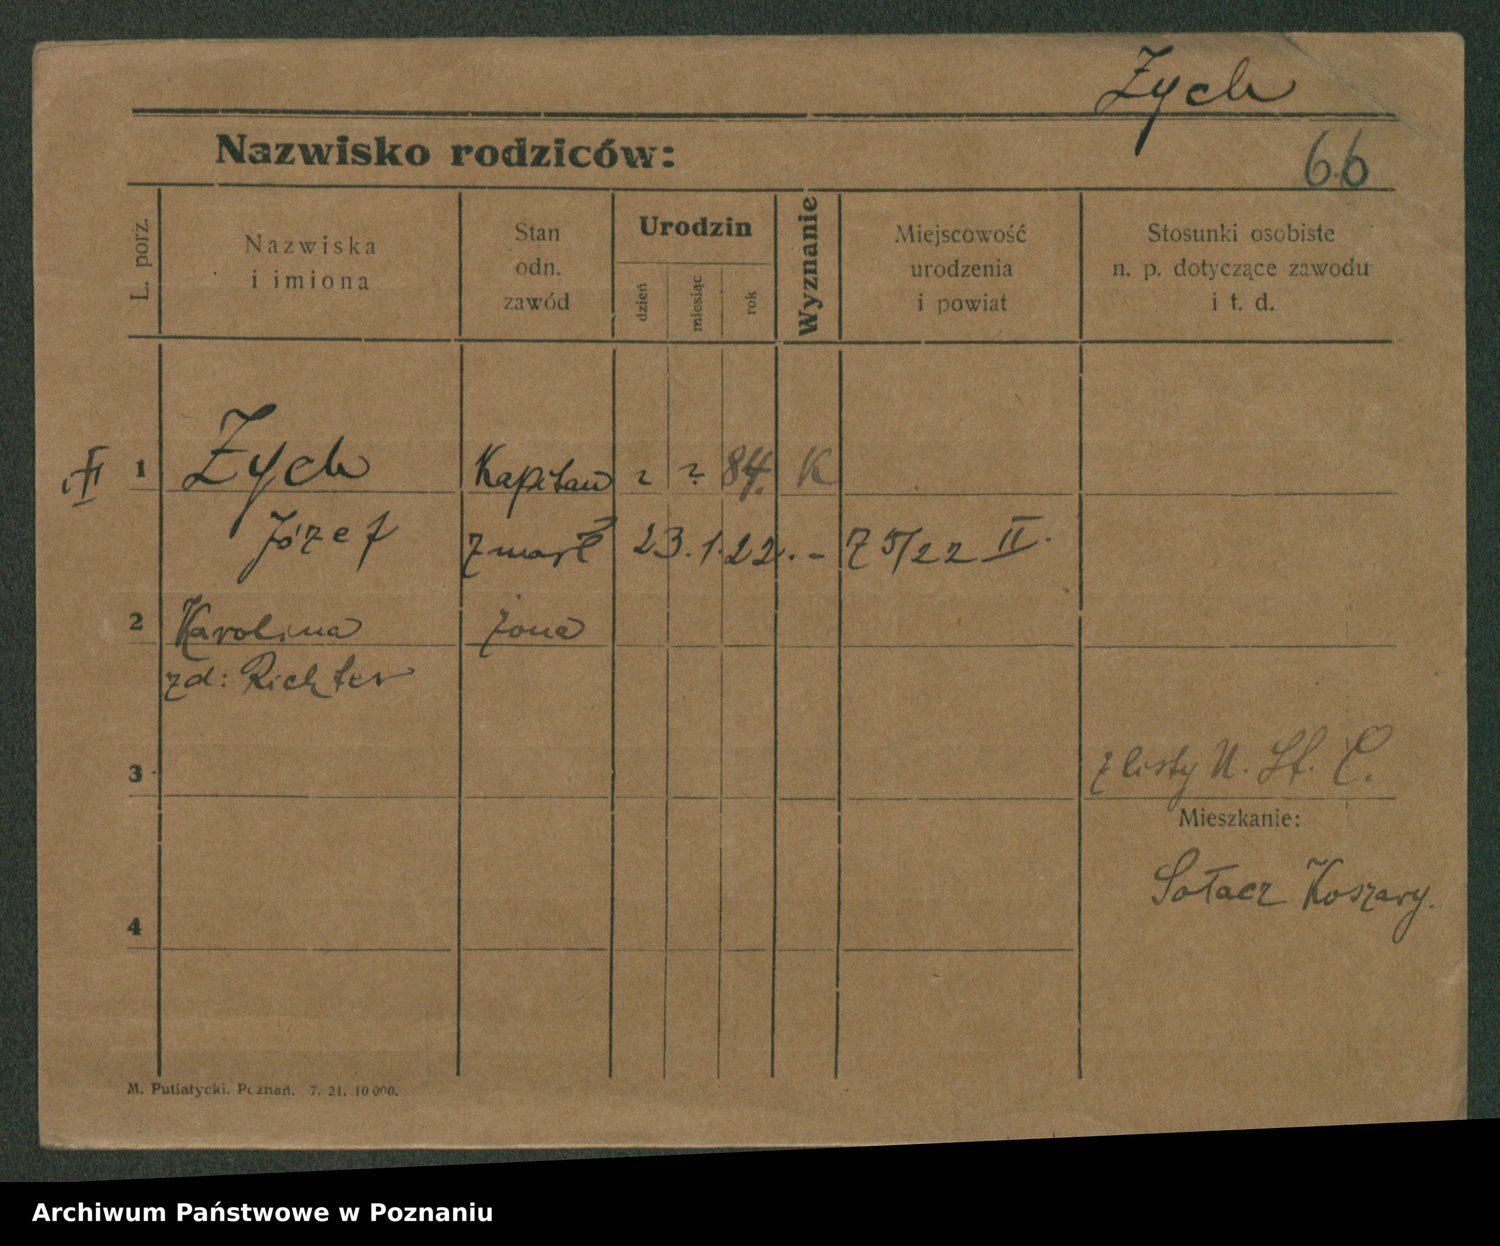 Zych
Nazwisko rodziców:
66
L. porz.
Nazwiska
i imiona
Stan
odn.
zawód
Urodzin
dzień
miesiąc
rok
Wyznanie
Miejscowość
urodzenia
i powiat
Stosunki osobiste
n. p. dotyczące zawodu
i t. d.
1 Zych Kapitan ? ? 84. K
Józef zmarł 23. 1. 22. - Z 5/22 II.
2 Karolina żona
zd: Richter
3
z listy U. St. C.
Mieszkanie:
Sołacz Koszary.
4
M. Putiatycki. Poznań. 7. 21. 10000.
Archiwum Państwowe w Poznaniu